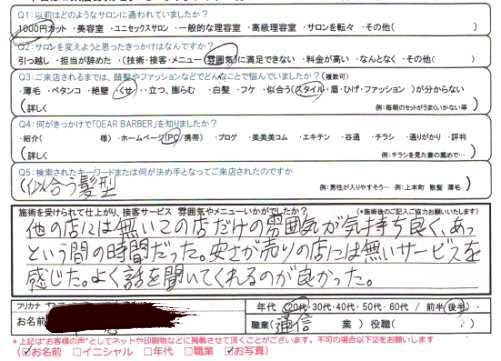 Q1:以前はどのようなサロンに通われていましたか?
1000円カット ・美容室 ・ユニセックスサロン ・一般的な理容室 ・高級理容室 ・サロンを転々 ・その他( )
Q2:サロンを変えようと思ったきっかけはなんですか?
引っ越し ・担当が辞めた ・(技術・接客・メニュー・雰囲気)に満足できない ・料金が高い ・なんとなく ・その他( )
Q3:ご来店されるまでは、頭髪やファッションなどでどんなことで悩んでいましたか?(複数可)
・薄毛 ・ペタンコ ・絶壁 ・くせ ・立つ、膨らむ ・白髪 ・フケ ・似合う(スタイル・眉・ひげ・ファッション)が分からない
(詳しく 例:毎朝のセットがうまくいかない等 )
Q4:何がきっかけで「DEAR BARBER」を知りましたか?
・紹介( 様) ・ホームページ(PC/携帯) ・ブログ ・美美美コム ・エキテン ・谷通 ・チラシ ・通りがかり ・評判
(詳しく 例:チラシを見た妻の薦めで… )
Q5:検索されたキーワードまたは何が決め手となってご来店されたのですか
似合う髪型
例:男性が入りやすそう… 例:上本町 散髪 薄毛
施術を受けられて仕上がり、接客サービス 雰囲気やメニューいかがでしたか? (*施術後のご記入ご協力お願いいたします)
他の店には無いこの店だけの雰囲気が気持ち良く、あっ
という間の時間だった。安さが売りの店には無いサービスを
感じた。よく話を聞いてくれるのが良かった。
フリカナ
お名前
年代 20代・30代・40代・50代・60代 / 前半・後半
職業( 通信 業 ) 役職( )
*上記は"お客様の声"としてネットや印刷物などに掲載させて頂くことがございます。不可の場合以下☑をお願いします
(☑お名前 □イニシャル □年代 □職業 ☑お写真)